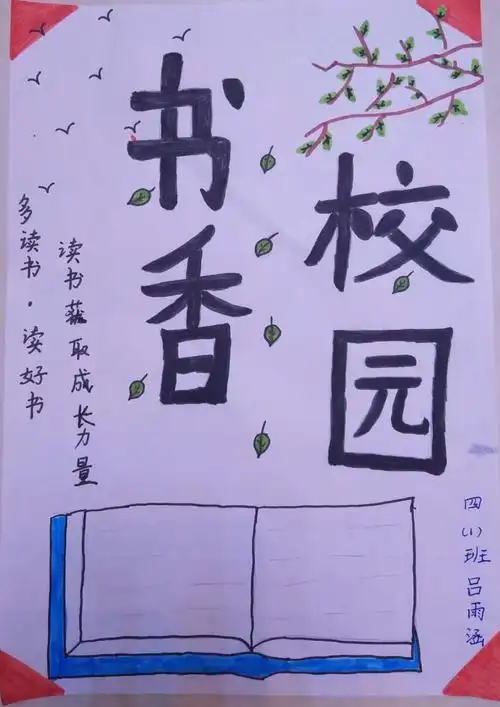 书香
校园
多读书·读好书
读书获取成长力量
四(1)班 吕雨涵